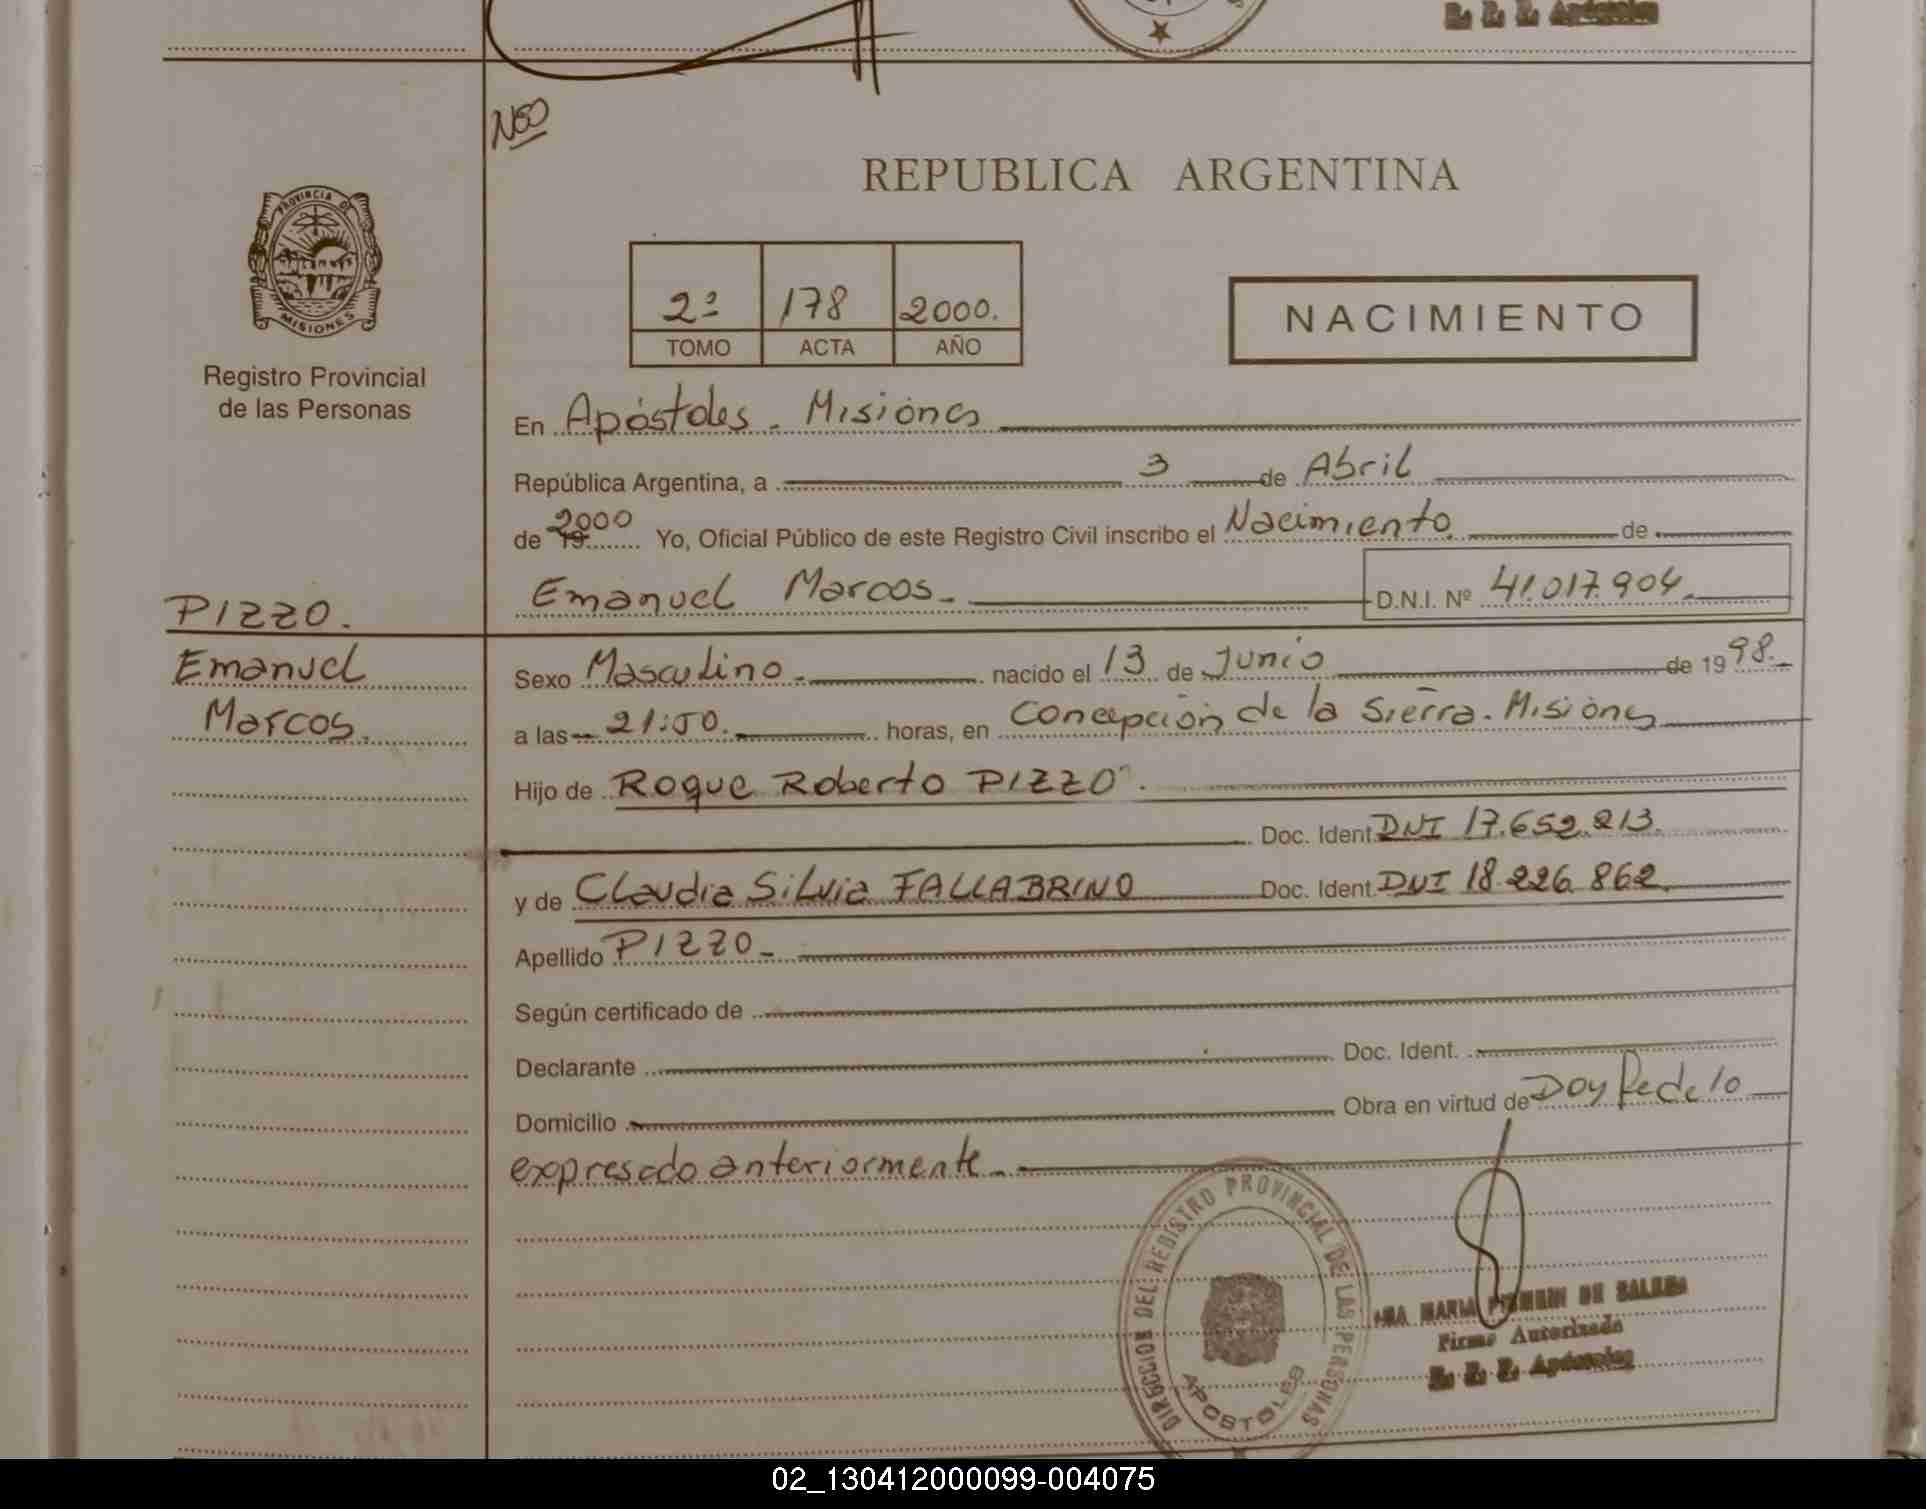 R. P. P. Apóstoles
N80
PROVINCIA DE
MISIONES
Registro Provincial
de las Personas
REPUBLICA ARGENTINA
2º 178 2000.
TOMO ACTA AÑO
NACIMIENTO
En Apóstoles - Misiones
República Argentina, a 3 de Abril
de 19 2000 Yo, Oficial Público de este Registro Civil inscribo el Nacimiento de
Emanuel Marcos. D.N.I. Nº 41.017.904.
PIZZO.
Emanuel
Marcos.
Sexo Masculino. nacido el 13 de Junio de 1998.
a las 21:50. horas, en Concepción de la Sierra. Misiones
Hijo de Roque Roberto PIZZO.
Doc. Ident. DNI 17.652.213.
y de Claudia Silvia FALLABRINO Doc. Ident. DNI 18.226.862.
Apellido PIZZO
Según certificado de
Declarante Doc. Ident.
Domicilio Obra en virtud de Doy fe de lo
expresado anteriormente
DIRECCION DEL REGISTRO PROVINCIAL DE LAS PERSONAS
APOSTOLES
MARIA DE
Firma Autorizada
R. P. P. Apóstoles
02_130412000099-004075